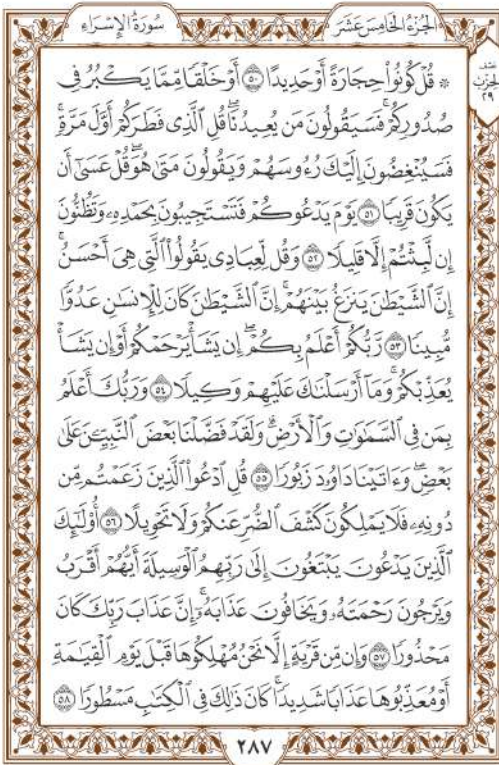 سُورَةُ الإِسْرَاءِ
الجُزْءُ الخَامِسَ عَشَرَ
نصف
الحزب
٢٩
۞ قُلْ كُونُوا۟ حِجَارَةً أَوْ حَدِيدًا ۝٥٠ أَوْ خَلْقًا مِّمَّا يَكْبُرُ فِى
صُدُورِكُمْ ۚ فَسَيَقُولُونَ مَن يُعِيدُنَا ۖ قُلِ ٱلَّذِى فَطَرَكُمْ أَوَّلَ مَرَّةٍ ۚ
فَسَيُنْغِضُونَ إِلَيْكَ رُءُوسَهُمْ وَيَقُولُونَ مَتَىٰ هُوَ ۖ قُلْ عَسَىٰٓ أَن
يَكُونَ قَرِيبًا ۝٥١ يَوْمَ يَدْعُوكُمْ فَتَسْتَجِيبُونَ بِحَمْدِهِۦ وَتَظُنُّونَ
إِن لَّبِثْتُمْ إِلَّا قَلِيلًا ۝٥٢ وَقُل لِّعِبَادِى يَقُولُوا۟ ٱلَّتِى هِىَ أَحْسَنُ ۚ
إِنَّ ٱلشَّيْطَٰنَ يَنزَغُ بَيْنَهُمْ ۚ إِنَّ ٱلشَّيْطَٰنَ كَانَ لِلْإِنسَٰنِ عَدُوًّا
مُّبِينًا ۝٥٣ رَّبُّكُمْ أَعْلَمُ بِكُمْ ۖ إِن يَشَأْ يَرْحَمْكُمْ أَوْ إِن يَشَأْ
يُعَذِّبْكُمْ ۚ وَمَآ أَرْسَلْنَٰكَ عَلَيْهِمْ وَكِيلًا ۝٥٤ وَرَبُّكَ أَعْلَمُ
بِمَن فِى ٱلسَّمَٰوَٰتِ وَٱلْأَرْضِ ۗ وَلَقَدْ فَضَّلْنَا بَعْضَ ٱلنَّبِيِّۦنَ عَلَىٰ
بَعْضٍ ۖ وَءَاتَيْنَا دَاوُۥدَ زَبُورًا ۝٥٥ قُلِ ٱدْعُوا۟ ٱلَّذِينَ زَعَمْتُم مِّن
دُونِهِۦ فَلَا يَمْلِكُونَ كَشْفَ ٱلضُّرِّ عَنكُمْ وَلَا تَحْوِيلًا ۝٥٦ أُو۟لَٰٓئِكَ
ٱلَّذِينَ يَدْعُونَ يَبْتَغُونَ إِلَىٰ رَبِّهِمُ ٱلْوَسِيلَةَ أَيُّهُمْ أَقْرَبُ
وَيَرْجُونَ رَحْمَتَهُۥ وَيَخَافُونَ عَذَابَهُۥٓ ۚ إِنَّ عَذَابَ رَبِّكَ كَانَ
مَحْذُورًا ۝٥٧ وَإِن مِّن قَرْيَةٍ إِلَّا نَحْنُ مُهْلِكُوهَا قَبْلَ يَوْمِ ٱلْقِيَٰمَةِ
أَوْ مُعَذِّبُوهَا عَذَابًا شَدِيدًا ۚ كَانَ ذَٰلِكَ فِى ٱلْكِتَٰبِ مَسْطُورًا ۝٥٨
٢٨٧